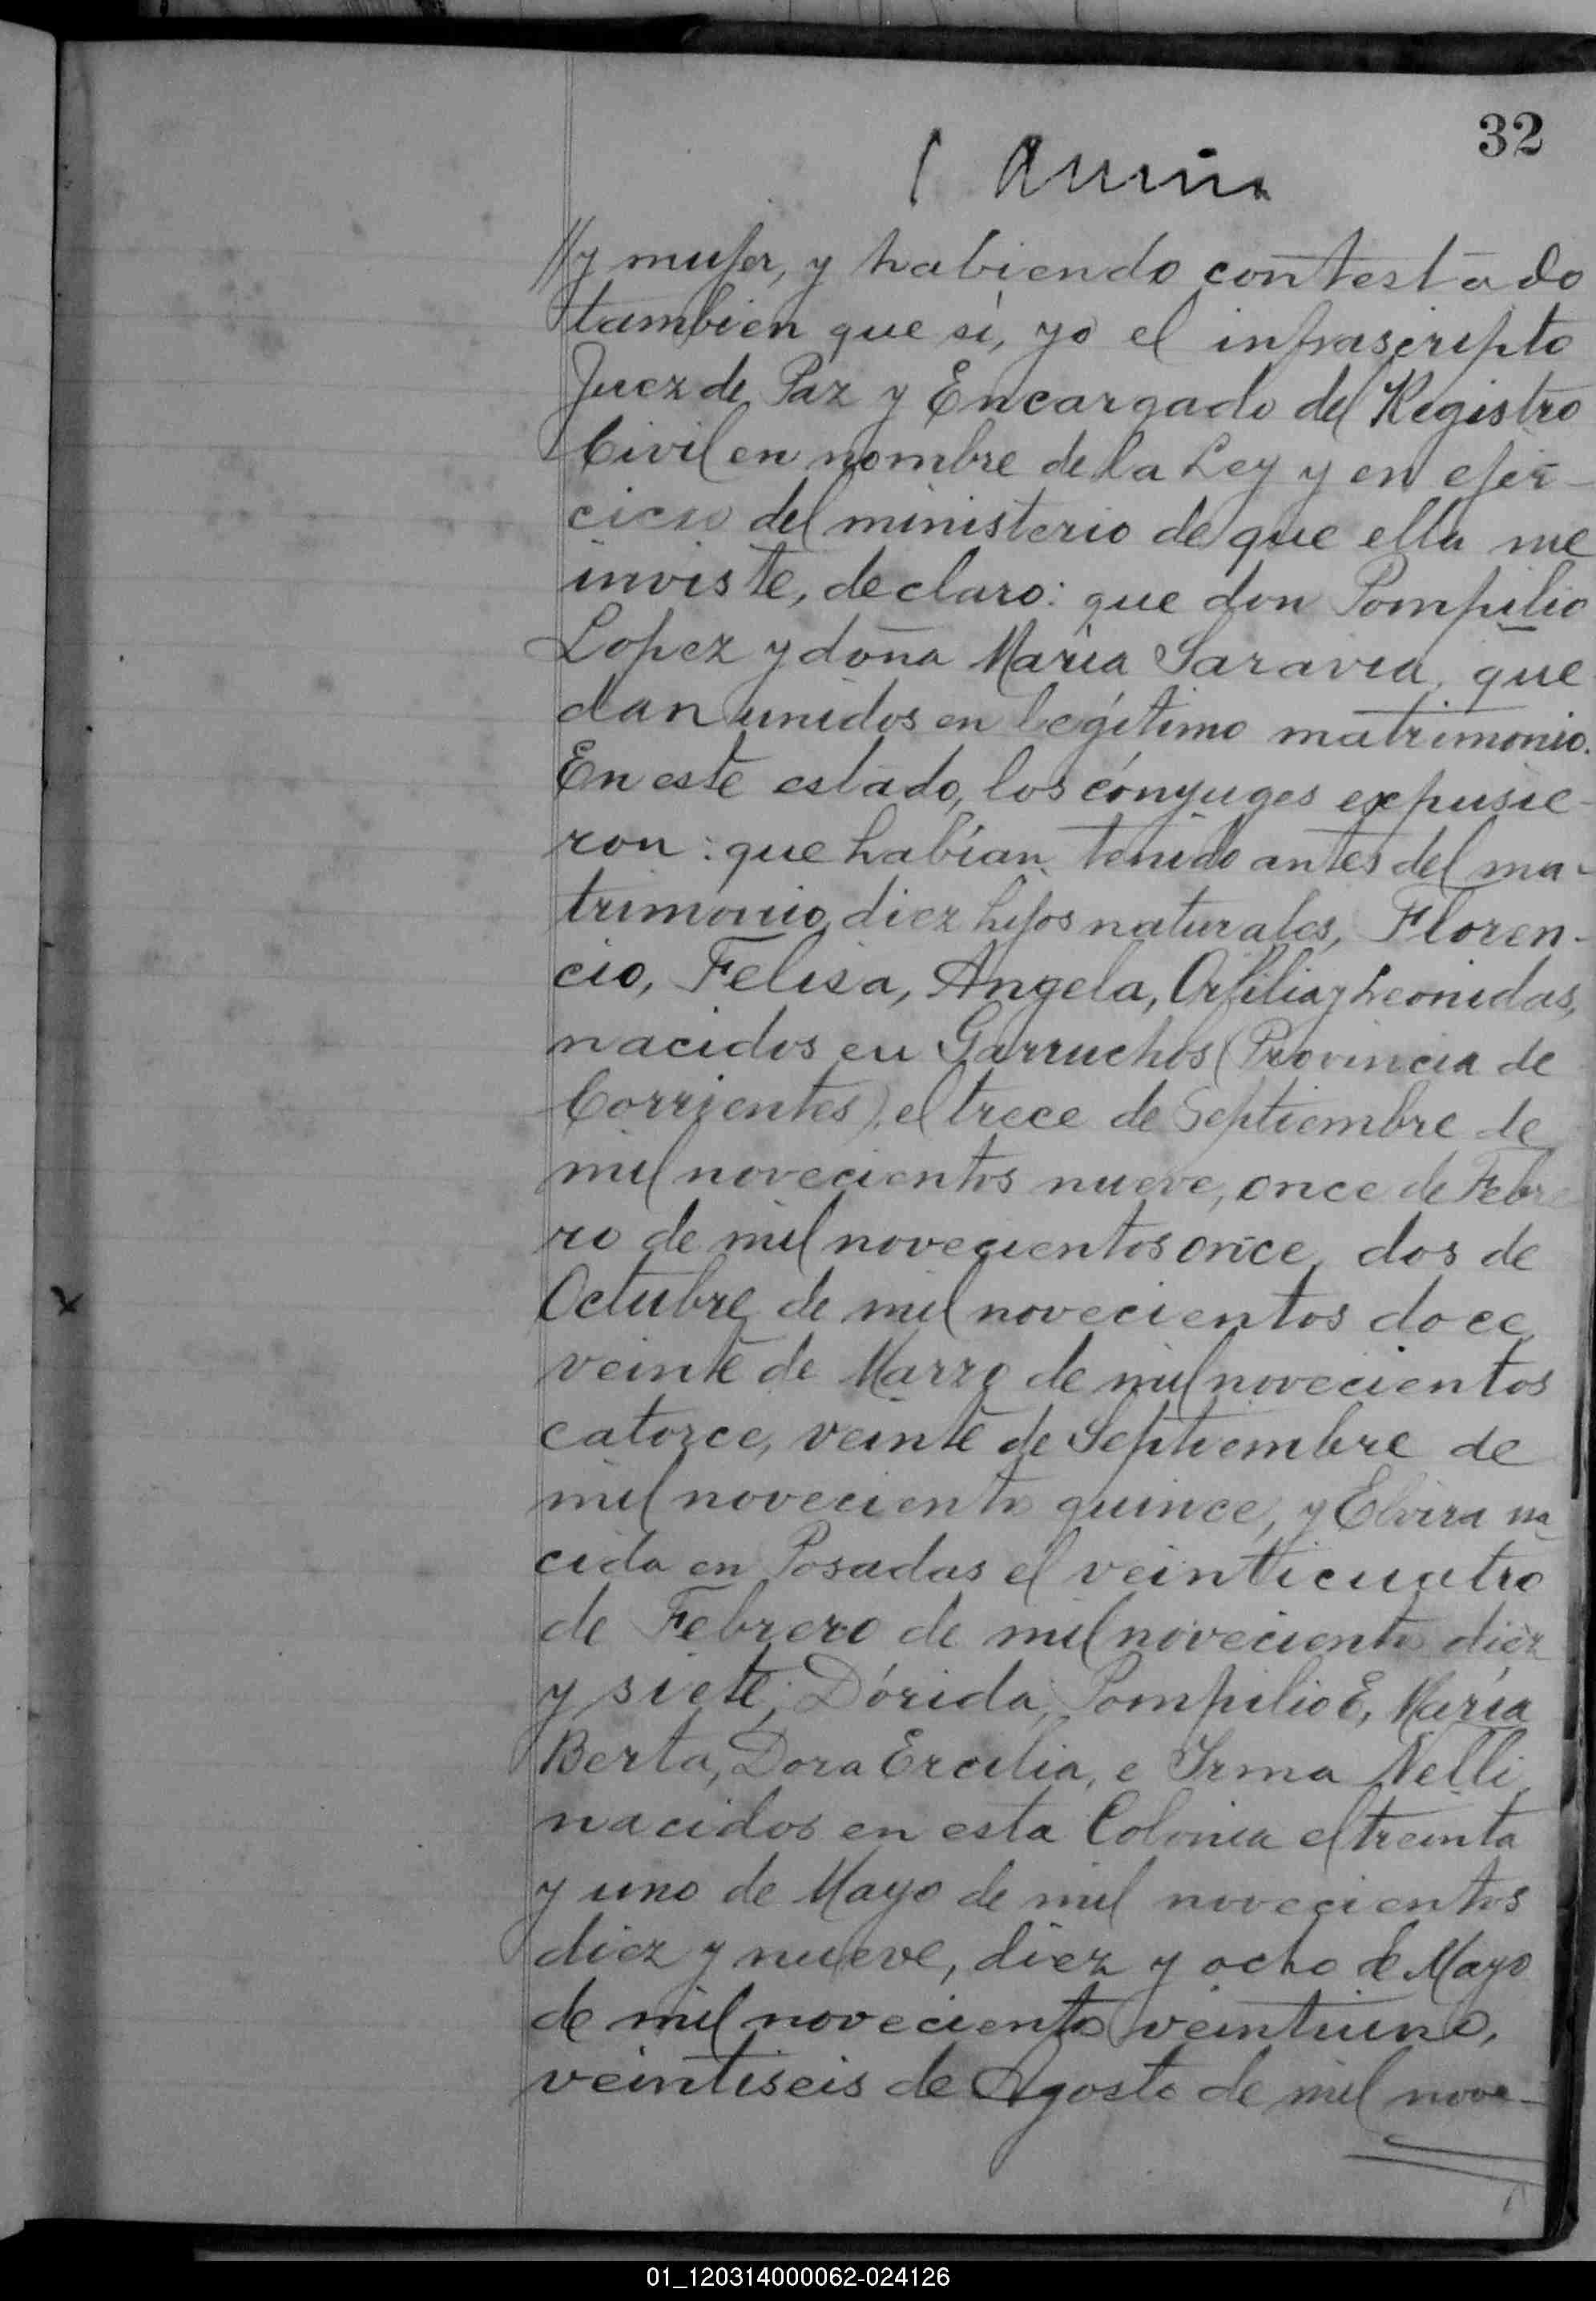 32
//y mujer, y habiendo contestado
tambien que sí, yo el infrascripto
Juez de Paz y Encargado del Registro
Civil en nombre de la Ley y en ejer-
cicio del ministerio de que ella me
inviste, declaro: que don Pompilio
Lopez y doña María Saravia, que
dan unidos en legítimo matrimonio.
En este estado, los cónyuges expusie-
ron: que habían tenido antes del ma-
trimonio diez hijos naturales, Floren-
cio, Felisa, Angela, Orfilia y Leonidas,
nacidos en Garruchos (Provincia de
Corrientes), el trece de Septiembre de
mil novecientos nueve, once de Febre
ro de mil novecientos once, dos de
Octubre de mil novecientos doce,
veinte de Marzo de mil novecientos
catorce, veinte de Septiembre de
mil novecientos quince, y Elvira na
cida en Posadas el veinticuatro
de Febrero de mil novecientos diez
y siete; Dórida, Pompilio E, María
Berta, Dora Ercilia, e Irma Nelli,
nacidos en esta Colonia el treinta
y uno de Mayo de mil novecientos
diez y nueve, diez y ocho de Mayo
de mil novecientos veintiuno,
veintiseis de Agosto de mil nove-
01_120314000062-024126